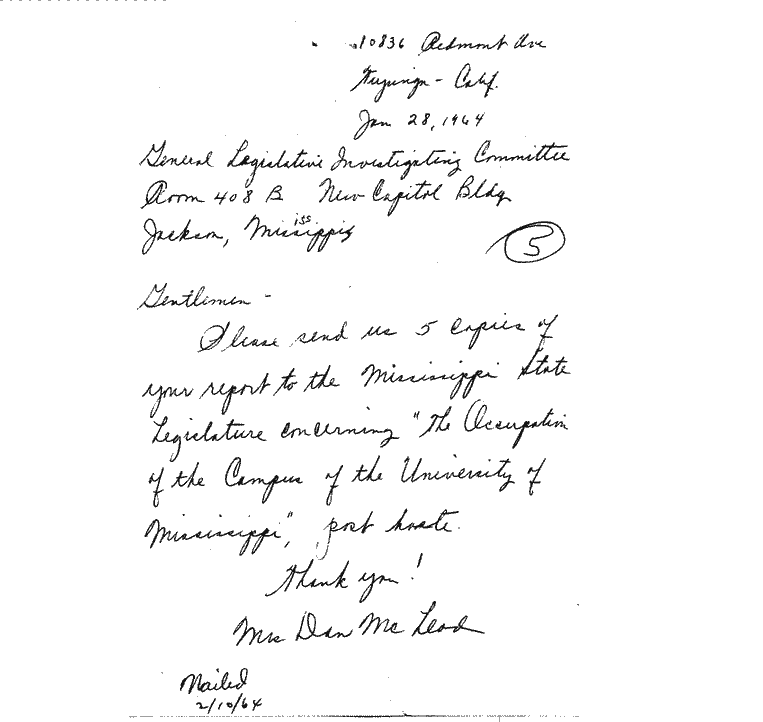 10836 Redmont Ave
Tujunga - Calif.
Jan 28, 1964
General Legislative Investigating Committee
Room 408 B New Capitol Bldg
Jackson, Mississippi
5
Gentlemen -
Please send us 5 copies of
your report to the Mississippi State
Legislature concerning "The Occupation
of the Campus of the University of
Mississippi", post haste.
Thank you!
Mrs Dan McLeod
Mailed
2/10/64